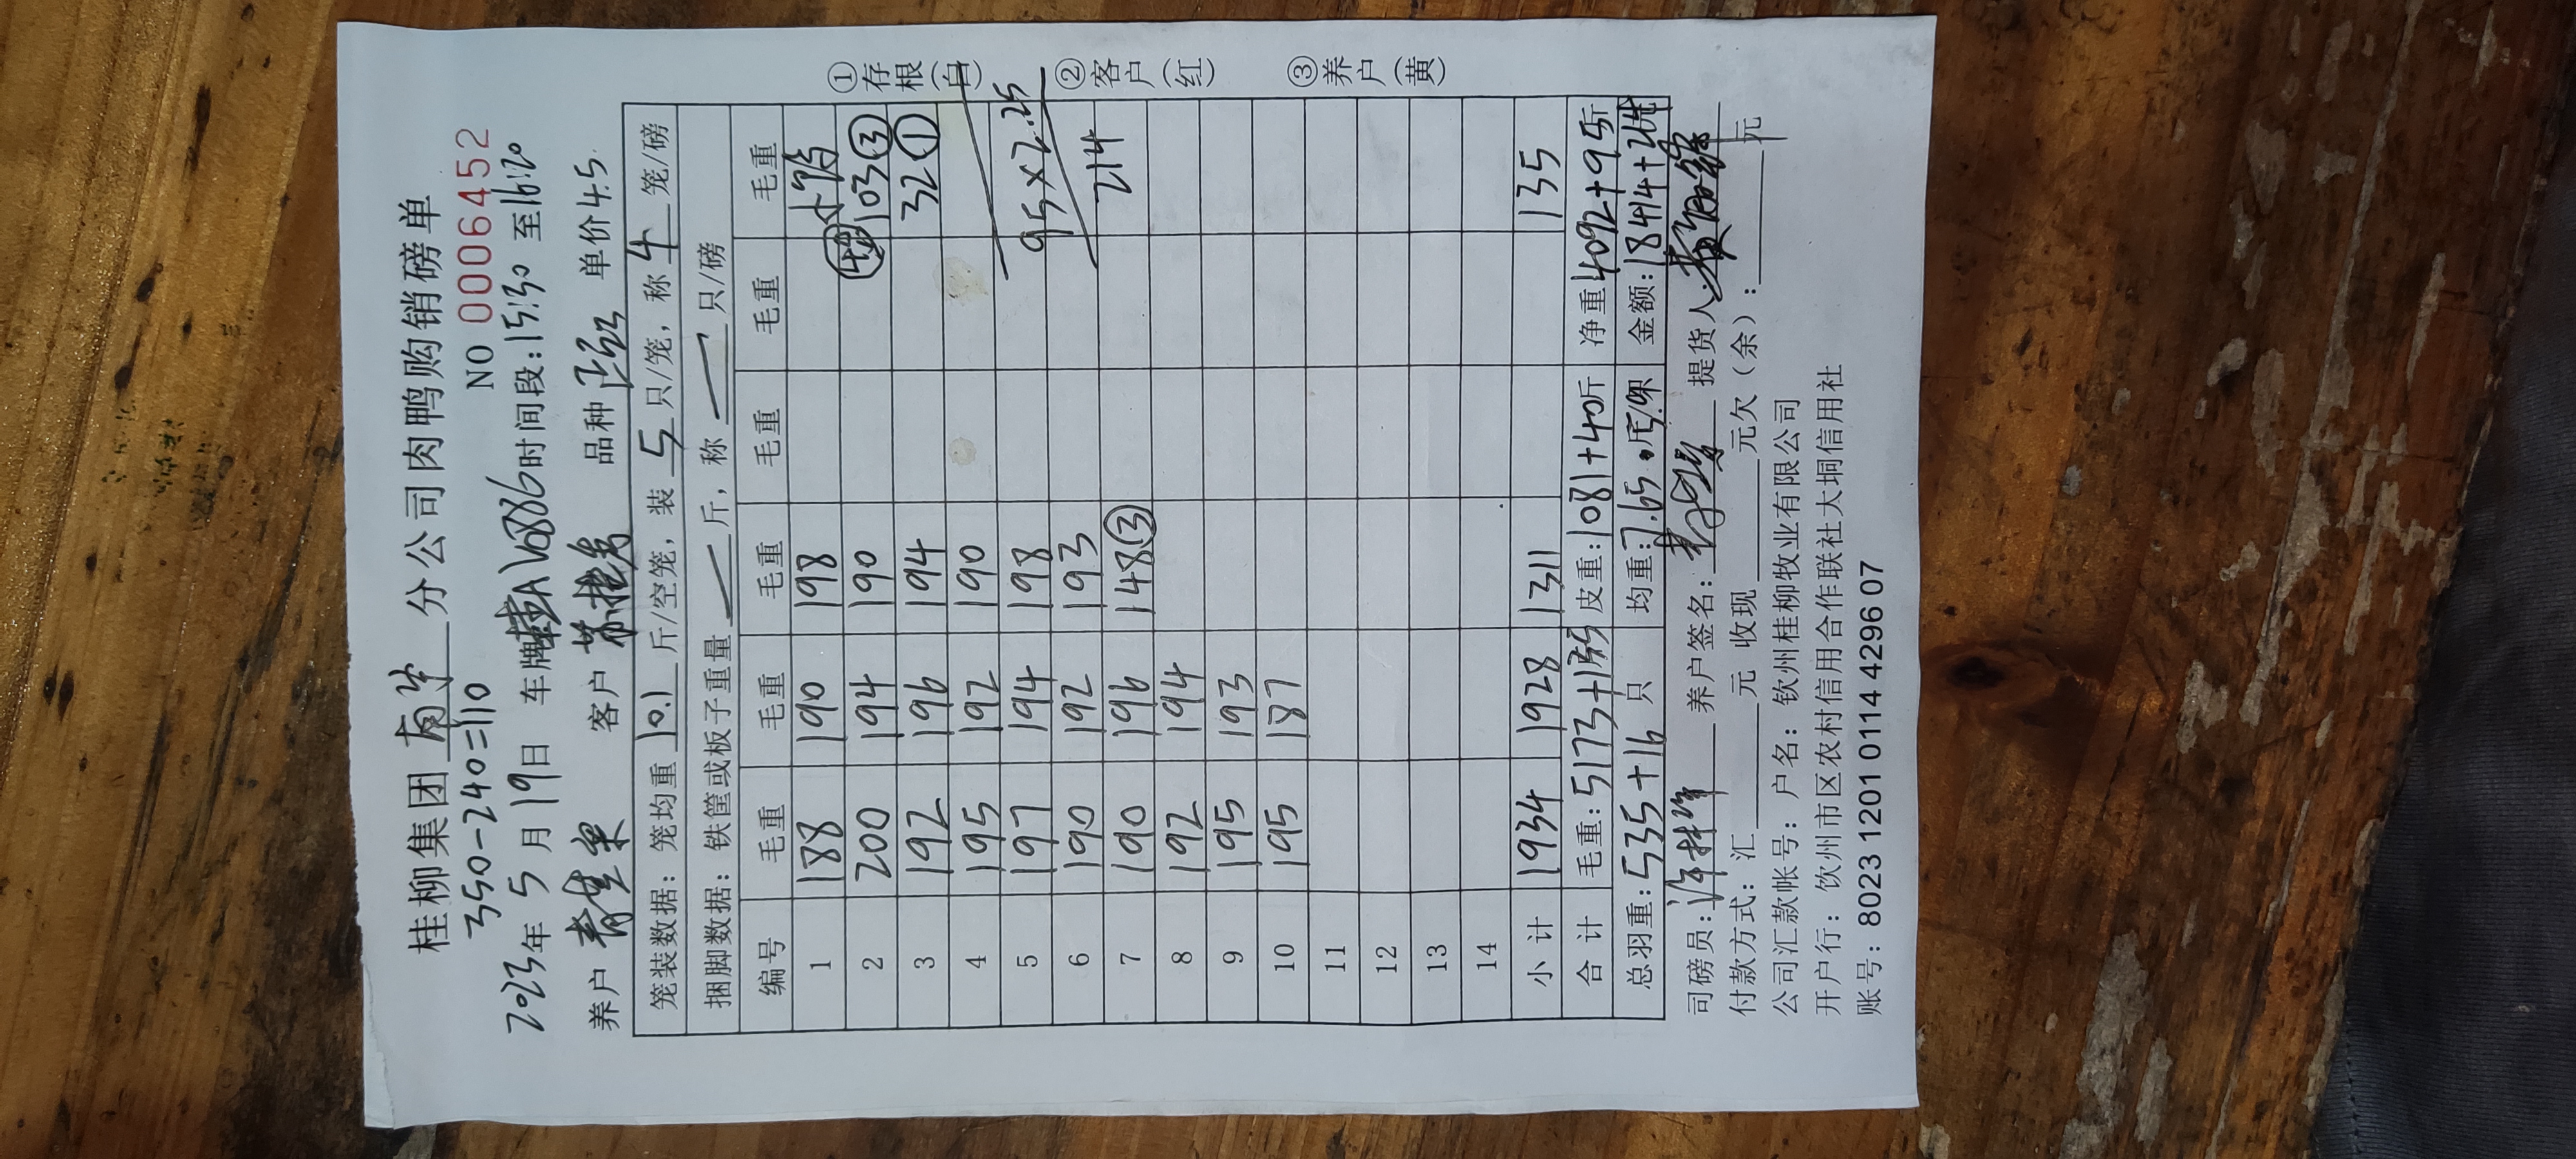 桂柳集团 南宁 分公司肉鸭购销磅单
350-240=110 NO 0006452
2023年 5 月 19日 车牌桂AV6886时间段:15:30 至16:20
养户 客户 品种 单价4.5
笼装数据: 笼均重 10.1 斤/空笼, 装 5 只/笼, 称 4 笼/磅
捆脚数据: 铁筐或板子重量 斤, 称 只/磅
编号 毛重 毛重 毛重 毛重 毛重 毛重
1 188 190 198 小鸭
2 200 194 190 ④ 103③
3 192 196 194 32①
4 195 192 190
5 197 194 198 95×2.25
6 190 192 193
7 190 196 148③ 214
8 192 194
9 195 193
10 195 187
11
12
13
14
小 计 1934 1928 1311 135
合 计 毛重: 5173+135 皮重:1081+40斤 净重4092+95斤
总羽重:535+16 只 均重:7.65 金额:18414+214
司磅员: 养户签名: 提货人:
付款方式: 汇 元 收现 元欠(余): 元
公司汇款帐号: 户名: 钦州桂柳牧业有限公司
开户行: 钦州市区农村信用合作联社大垌信用社
账号: 8023 1201 0114 4296 07
①存根(白)
②客户(红)
③养户(黄)